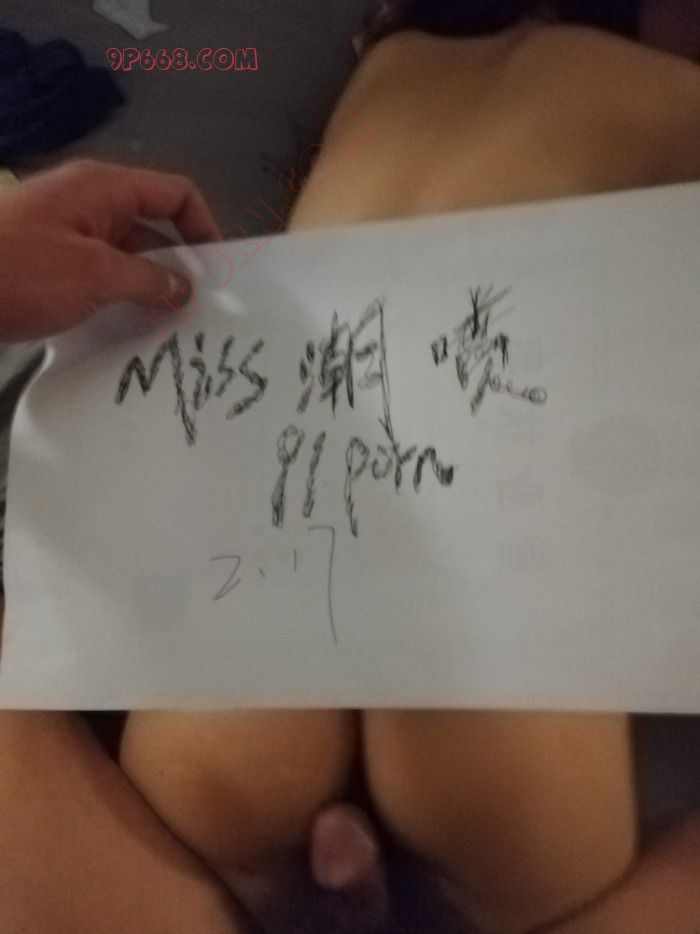 9P668.COM
Miss 潮喷
91porn
2.17